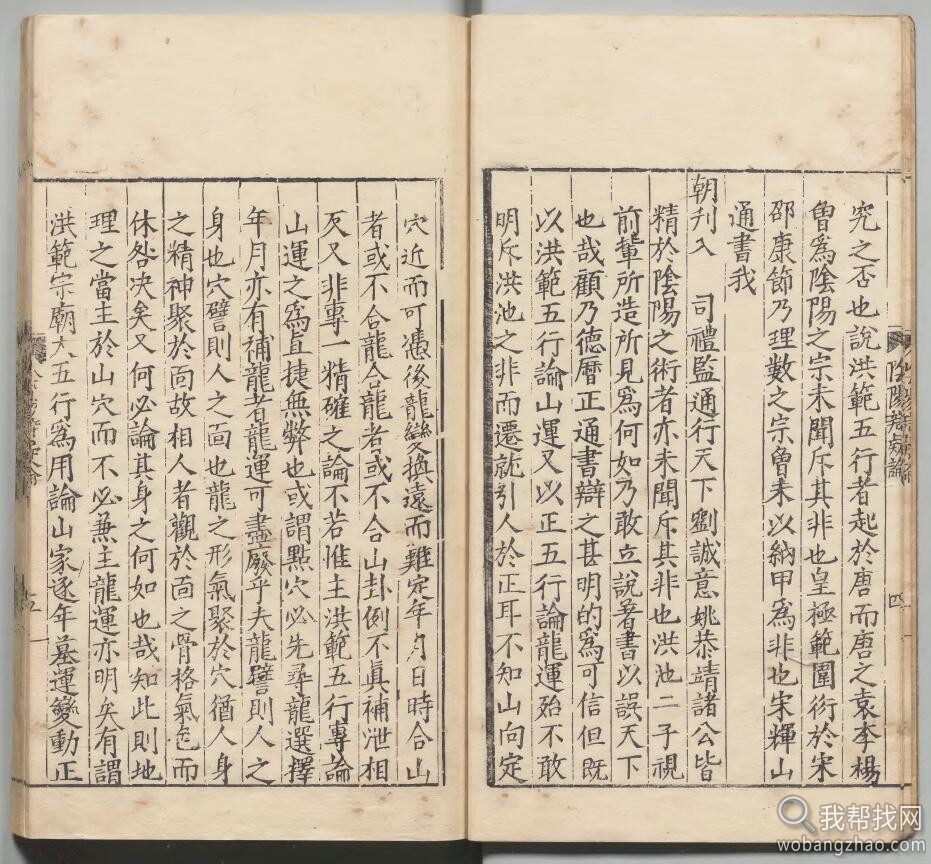 陰陽辯疑論
四
究之否也說洪範五行者起於唐而唐之袁李楊
曾爲陰陽之宗未聞斥其非也皇極範圍衍於宋
邵康節乃理數之宗曾未以納甲爲非也宋輝山
通書我
朝刋入　司禮監通行天下劉誠意姚恭靖諸公皆
精於陰陽之術者亦未聞斥其非也洪池二子視
前軰所造所見爲何如乃敢立說著書以誤天下
也哉顧乃德曆正通書辯之甚明的爲可信但既
以洪範五行論山運又以正五行論龍運殆不敢
明斥洪池之非而遷就引人於正耳不知山向定
穴近而可憑後龍變換遠而難定年月日時合山
者或不合龍合龍者或不合山卦例不眞補泄相
反又非專一精確之論不若惟主洪範五行專論
山運之爲直捷無弊也或謂點穴必先尋龍選擇
年月亦有補龍者龍運可盡廢乎夫龍譬則人之
身也穴譬則人之面也龍之形氣聚於穴猶人身
之精神聚於面故相人者觀於面之骨格氣色而
休咎决矣又何必論其身之何如也哉知此則地
理之當主於山穴而不必兼主龍運亦明矣有謂
洪範宗廟大五行爲用論山家逐年墓運變動正
五
我帮找网
wobangzhao.com